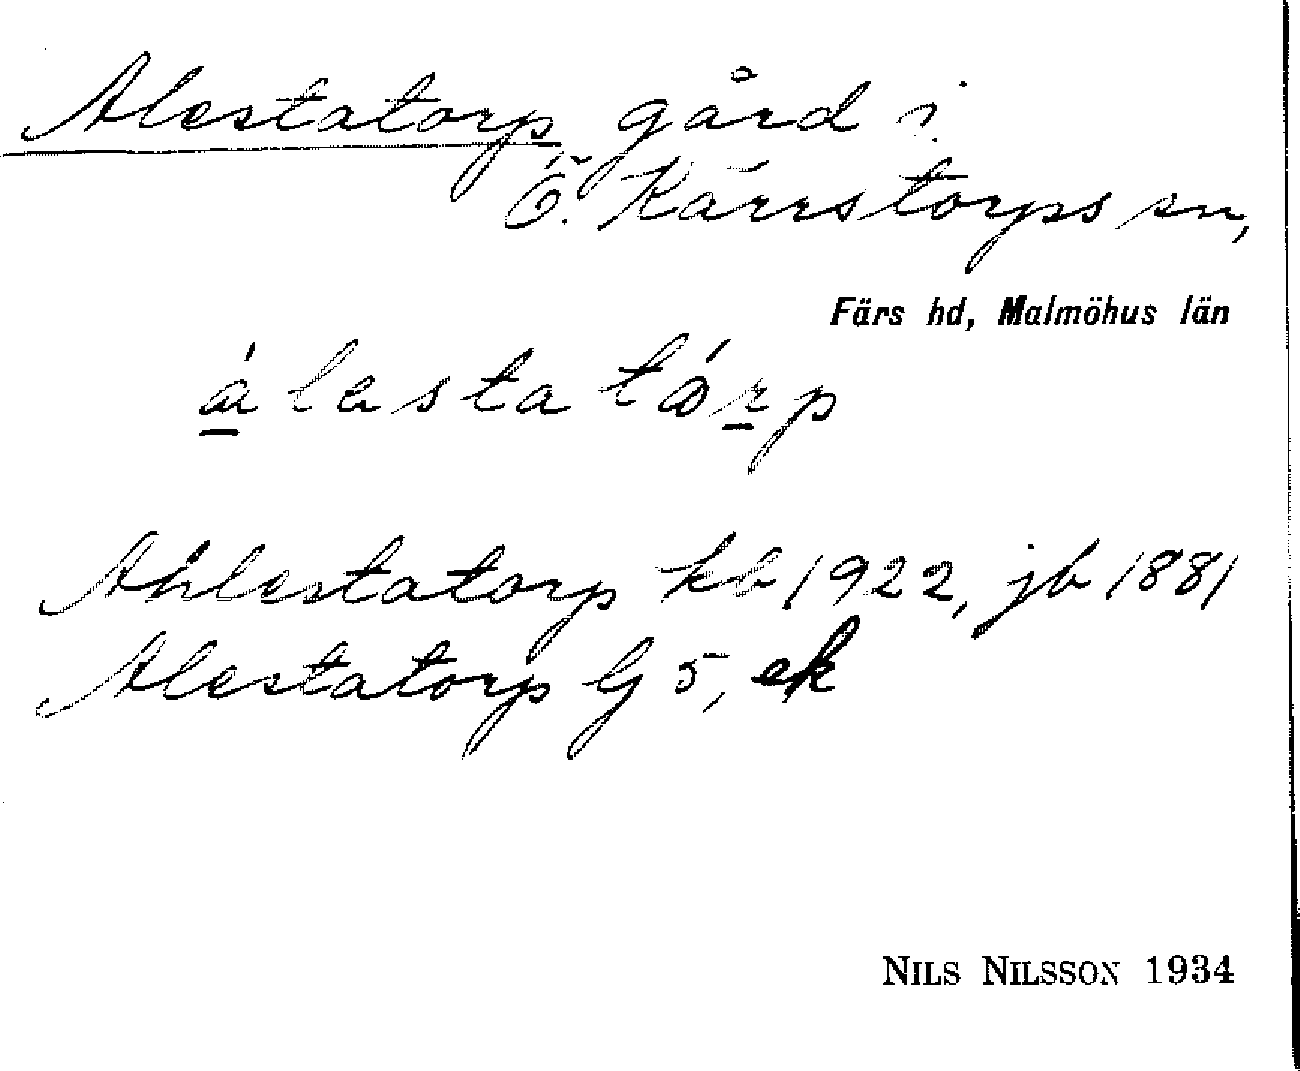 Alestatorp gård i
Ö. Kärrstorps sn,
Färs hd, Malmöhus län
álestatórp
Ahlestatorp kb 1922, jb 1881
Alestatorp G 5, ek
NILS NILSSON 1934